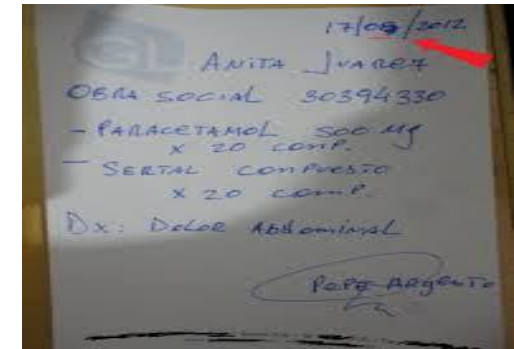 17/08/2012
ANITA JUAREZ
OBRA SOCIAL 30394330
- PARACETAMOL 500 Mg
X 20 COMP.
- SERTAL COMPUESTO
X 20 COMP.
Dx: DOLOR ABDOMINAL
PEPE ARGENTO